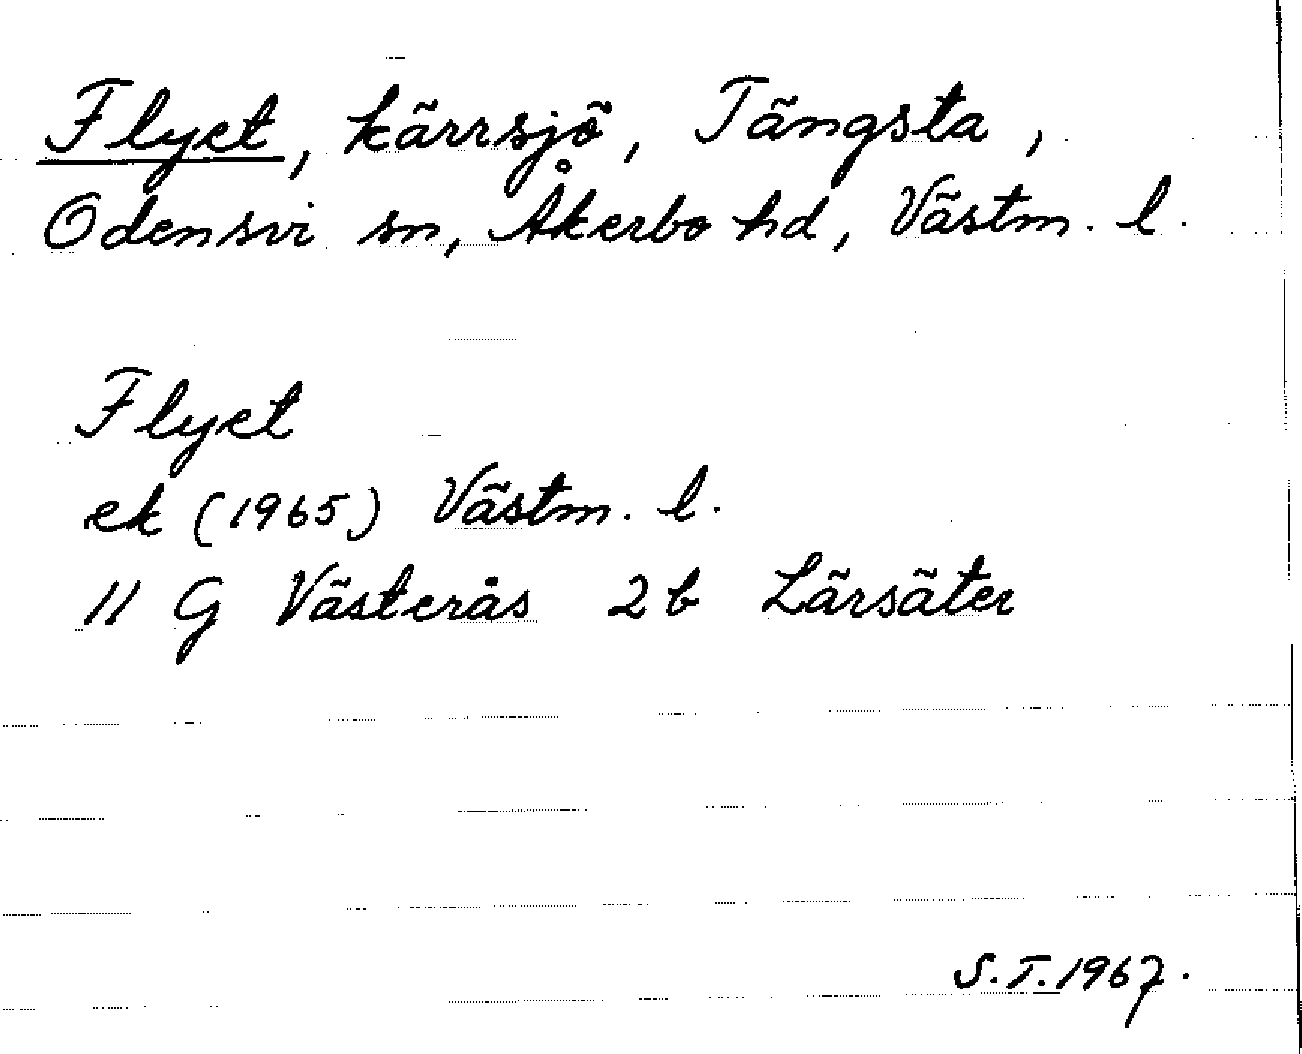 Flyet, kärrsjö, Tängsta,
Odensvi sn, Åkerbo hd, Västm. l.
Flyet
ek (1965) Västm. l.
11 G Västerås 2 b Lärsäter
S.T. 1967.